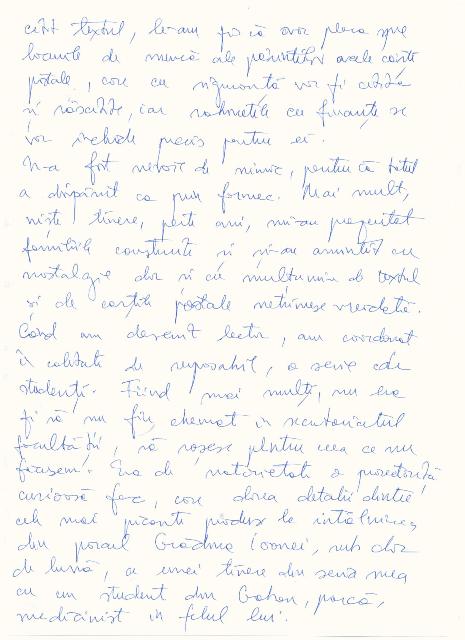 citit textul, le-am zis că vor pleca spre
locurile de muncă ale părinților acele cărți
poștale, care cu siguranță vor fi citite
și răscitite, iar rachetele cu finanțe se
vor închide precis pentru ei.
N-a fost nevoie de nimic, pentru că totul
a dispărut ca prin farmec. Mai mult,
niște tinere, peste ani, mi-au
familiile constituite și și-au amintit cu
nostalgie dar și cu mulțumire de textul
și de cărțile poștale netrimise vreodată.
Când am devenit lector, am coordonat
în calitate de responsabil, o serie de
studenți. Fiind mai mulți, nu era
zi să nu fiu chemat în secretariatul
facultății, să roșesc pentru ceea ce nu
făcusem. Era de notorietate o
curioasă foc, care dorea detalii dintre
cele mai picante produse la întâlnirea
din parcul Grădina Icoanei, sub clar
de lună, a unei tinere din seria mea
cu un student din Gabon, parcă,
medicinist în felul lui.